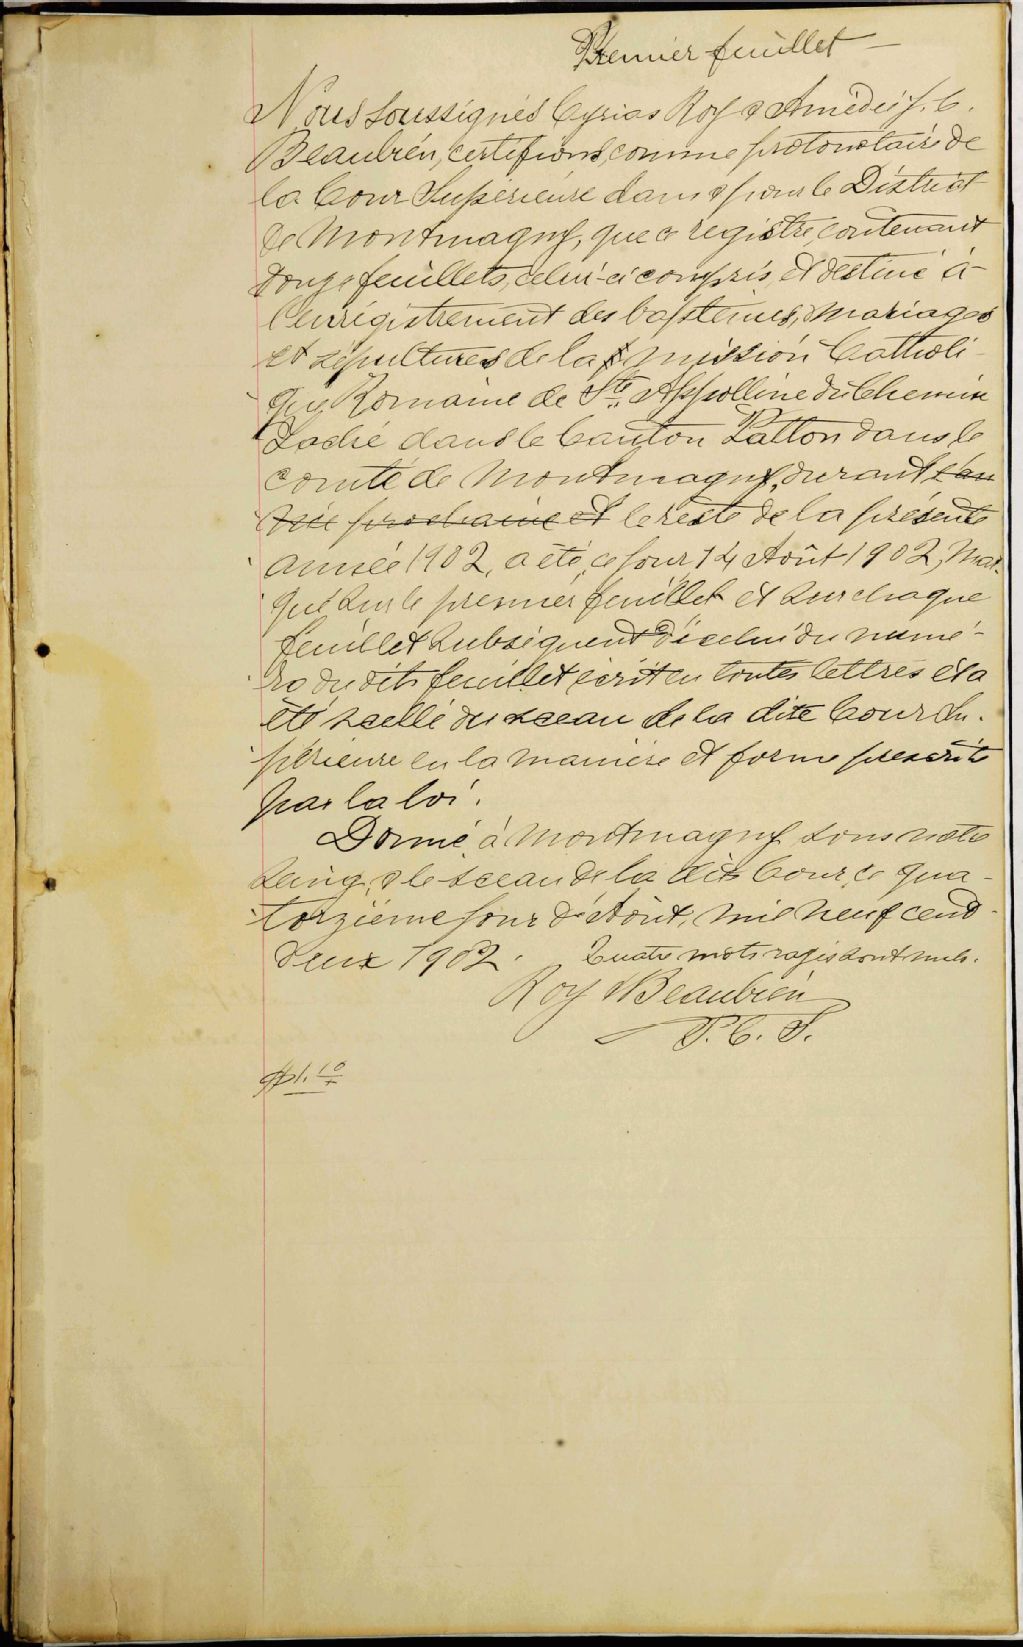 Premier feuillet —
Nous soussignés Cyrias Roy & Amédée J. C.
Beaubien, certifions, comme protonotaire de
la Cour Supérieure dans & pour le District
de Montmagny, que ce registre, contenant
douze feuillets, celui-ci compris, et destiné à
l'enrégistrement des baptêmes, mariages
et sépultures de la mission Catholi-
que Romaine de Ste Appolline du Chemin
Taché dans le Canton Patton dans le
comté de Montmagny, durant l'an
née prochaine et le reste de la présente
année 1902, a été, ce jour, 14 Août 1902, mar-
qué sur le premier feuillet et sur chaque
feuillet subséquent d'icelui du numé-
ro du dit feuillet écrit en toutes lettres et a
été scellé du sceau de la dite Cour Su-
périeure en la manière et forme prescrite
par la loi.
Donné à Montmagny sous notre
seing, & le sceau de la dite Cour, ce qua-
torzième jour d'Août, mil neuf cent-
deux 1902. Quatre mots rayés sont nuls.
Roy & Beaubien
P. C. S.
$1.10